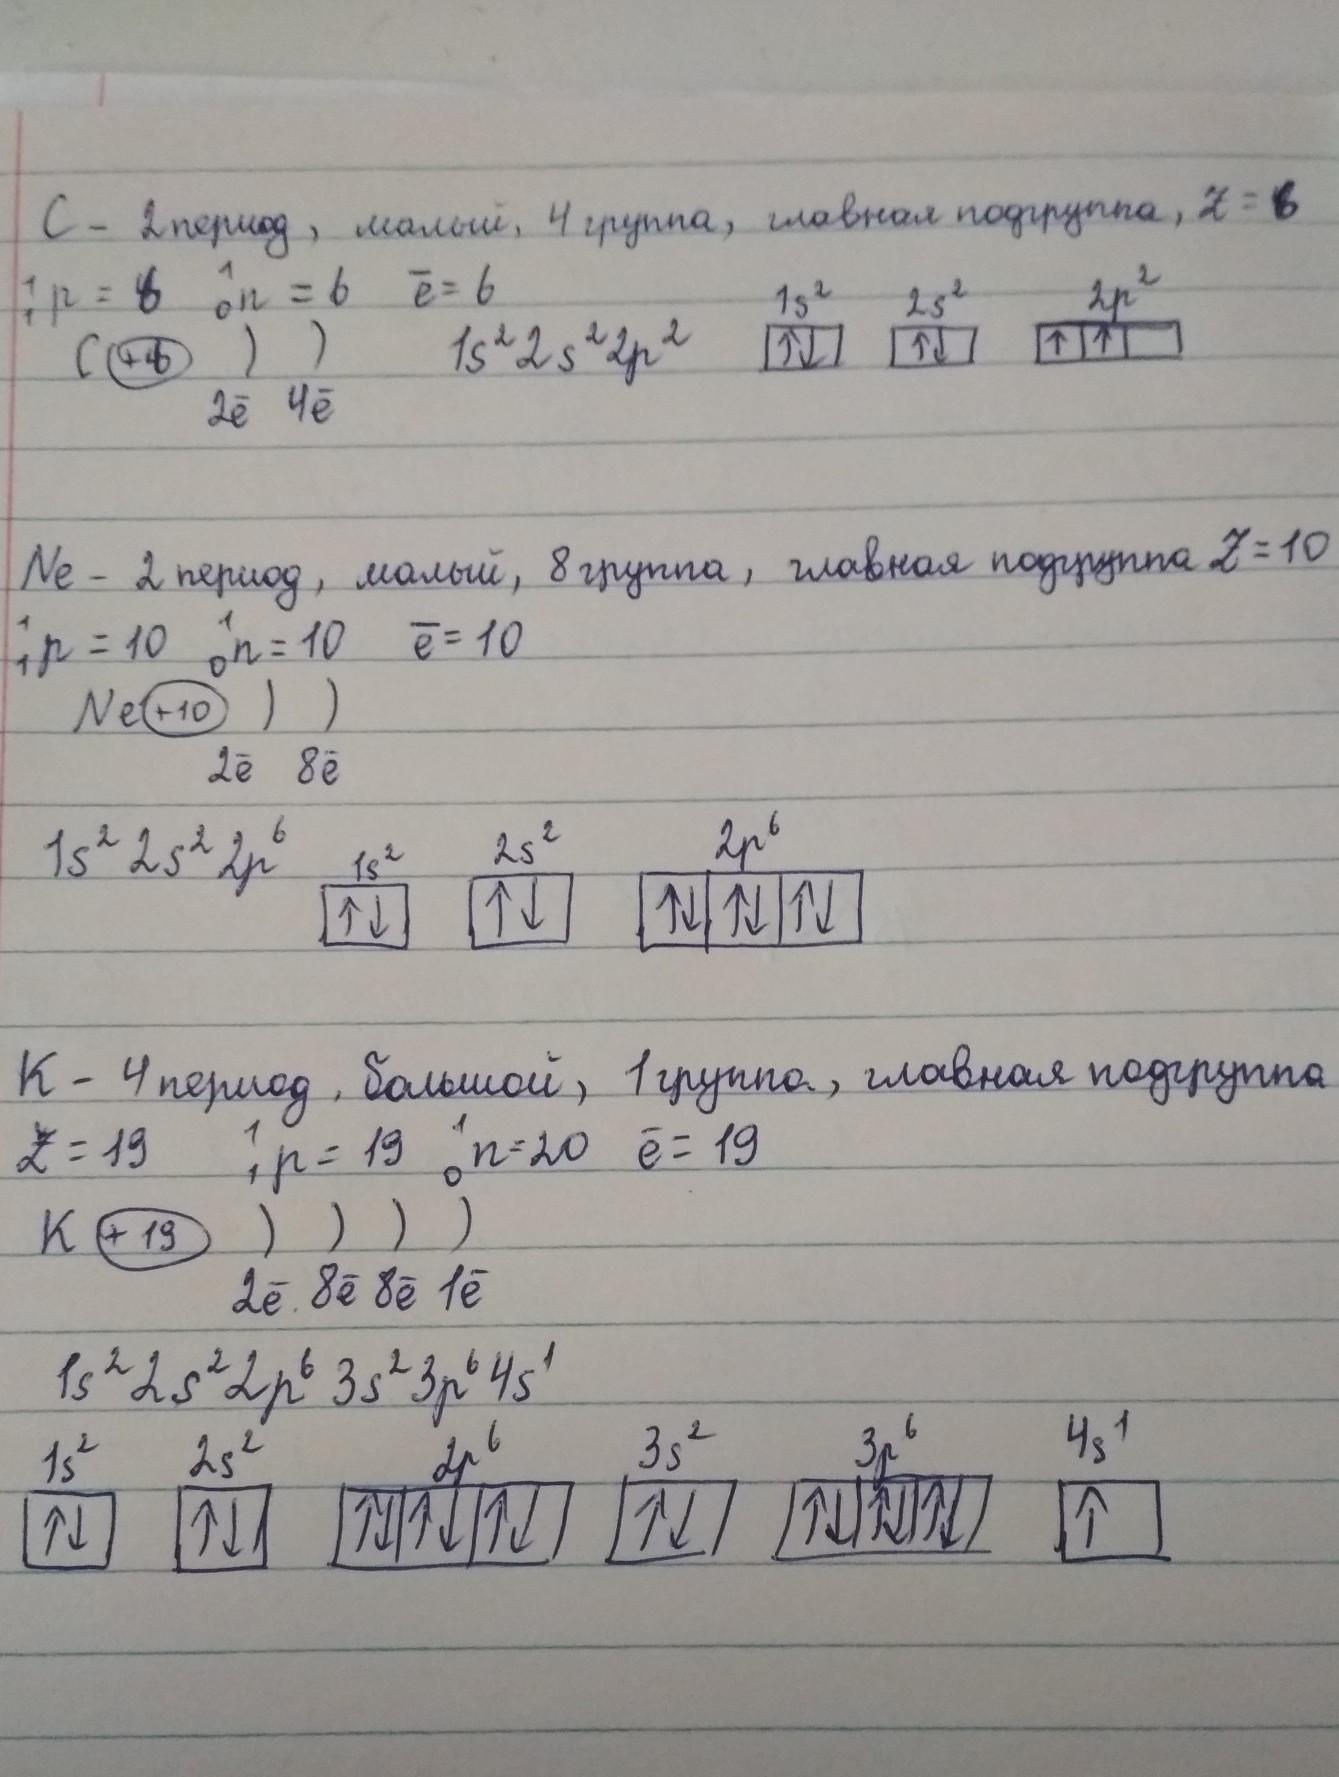 C - 2 период, малый, 4 группа, главная подгруппа, Z = 6
¹₁p = 6 ¹₀n = 6 ē = 6
C (+6) ) ) 1s² 2s² 2p² 1s² 2s² 2p²
↑↓ ↑↓ ↑ ↑
2ē 4ē
Ne - 2 период, малый, 8 группа, главная подгруппа Z = 10
¹₁p = 10 ¹₀n = 10 ē = 10
Ne (+10) ) )
2ē 8ē
1s² 2s² 2p⁶ 1s² 2s² 2p⁶
↑↓ ↑↓ ↑↓ ↑↓ ↑↓
K - 4 период, большой, 1 группа, главная подгруппа
Z = 19 ¹₁p = 19 ¹₀n = 20 ē = 19
K (+19) ) ) ) )
2ē 8ē 8ē 1ē
1s² 2s² 2p⁶ 3s² 3p⁶ 4s¹
1s² 2s² 2p⁶ 3s² 3p⁶ 4s¹
↑↓ ↑↓ ↑↓ ↑↓ ↑↓ ↑↓ ↑↓ ↑↓ ↑↓ ↑